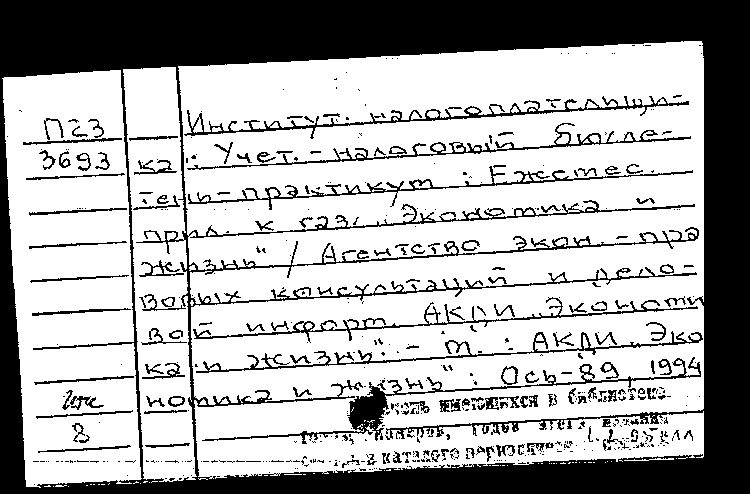 П23
3693
Институт налогоплательщи-
ка : Учет.-налоговый бюлле-
тень-практикум : Ежемес.
прил. к газ. „Экономика и
жизнь" / Агентство экон.-пра
вовых консультаций и дело-
вой информ. АКДИ „Экономи
ка и жизнь". - М. : АКДИ „Эко
номика и жизнь" : Ось-89, 1994
8
имеющихся в библиотеке
номеров, годов этого издания
в каталоге периодических